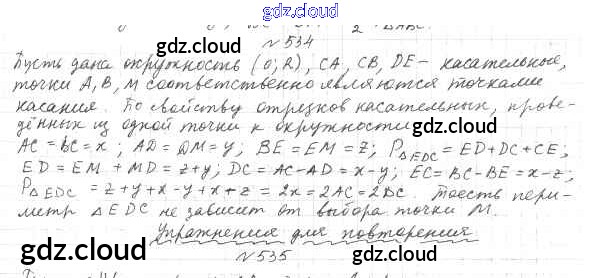 gdz.cloud
2 ΔАВС.
gdz.cloud №534 gdz.cloud
Пусть дана окружность (0; R), СА, СВ, DE – касательные,
точки А, В, М соответственно являются точками
касания. По свойству отрезков касательных, прове-
дённых из одной точки к окружности gdz.cloud
AC = BC = x ; AD = DM = y; BE = EM = z; P△EDC = ED + DC + CE;
ED = EM + MD = z + y; DC = AC - AD = x - y; EC = BC - BE = x - z;
P△EDC = z + y + x - y + x + z = 2x = 2AC = 2DC. Тоесть пери-
метр △EDC не зависит от выбора точки М.
gdz.cloud Упражнения для повторения gdz.cloud
№535
gdz.cloud